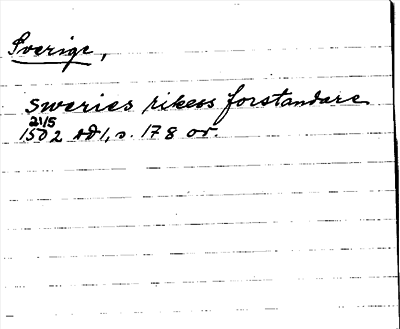 Sverige,
sweries rikess forstandare
21/5
1502 SD 1, s. 178 or.